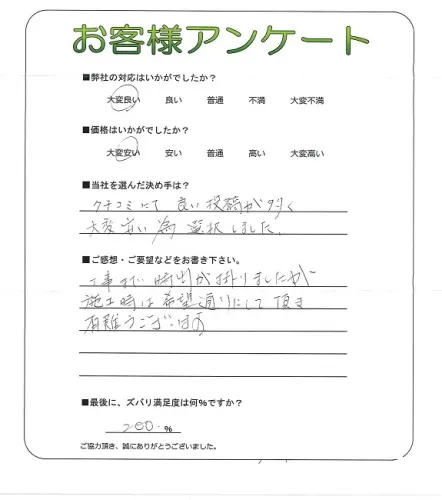 お客様アンケート
■弊社の対応はいかがでしたか？
大変良い 良い 普通 不満 大変不満
■価格はいかがでしたか？
大変安い 安い 普通 高い 大変高い
■当社を選んだ決め手は？
クチコミにて 良い 投稿が多く
大変安い為 選択しました。
■ご感想・ご要望などをお書き下さい。
工事まで 時間が掛りましたが
施工時は希望通りにして頂き
有難うございます
■最後に、ズバリ満足度は何％ですか？
200.％
ご協力頂き、誠にありがとうございました。